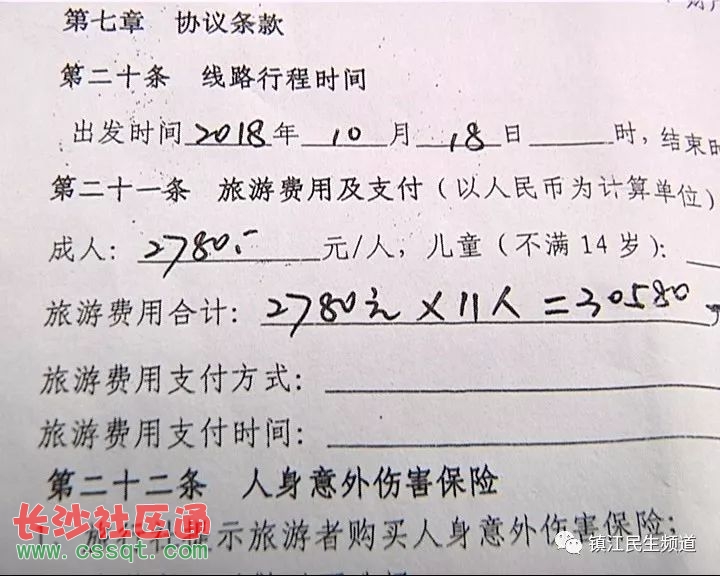 第七章 协议条款
第二十条 线路行程时间
出发时间2018年 10 月 18 日 时，结束时
第二十一条 旅游费用及支付（以人民币为计算单位）
成人：2780.- 元/人，儿童（不满14岁）：
旅游费用合计：2780元×11人=30580
旅游费用支付方式：
旅游费用支付时间：
第二十二条 人身意外伤害保险
示旅游者购买人身意外伤害保险；
长沙社区通
www.cssqt.com
镇江民生频道